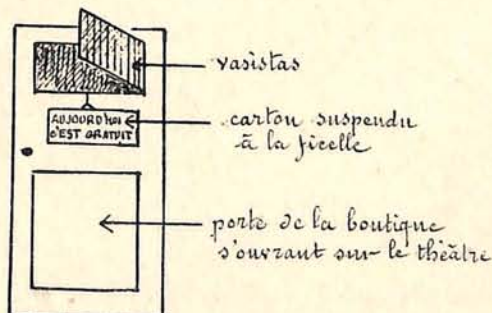 vasistas
AUJOURD'HUI
C'EST GRATUIT
carton suspendu
à la ficelle
porte de la boutique
s'ouvrant sur le théâtre